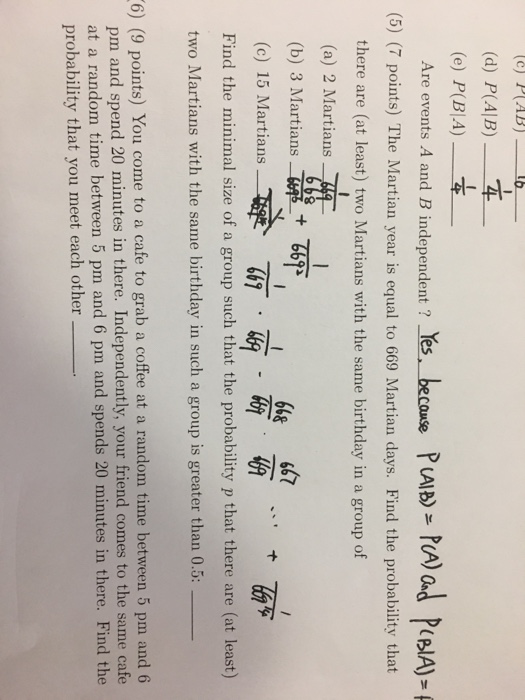 (c) P(AB) 16
(d) P(A|B) 1/4
(e) P(B|A) 1/4
Are events A and B independent ? Yes, because P(A|B) = P(A) and P(B|A) =
(5) (7 points) The Martian year is equal to 669 Martian days. Find the probability that
there are (at least) two Martians with the same birthday in a group of
(a) 2 Martians 1/669
(b) 3 Martians 668/669² + 1/669²
(c) 15 Martians
1/669 · 1/669 - 668/669 · 667/669 ... + 1/669¹⁴
Find the minimal size of a group such that the probability p that there are (at least)
two Martians with the same birthday in such a group is greater than 0.5:
6) (9 points) You come to a cafe to grab a coffee at a random time between 5 pm and 6
pm and spend 20 minutes in there. Independently, your friend comes to the same cafe
at a random time between 5 pm and 6 pm and spends 20 minutes in there. Find the
probability that you meet each other .